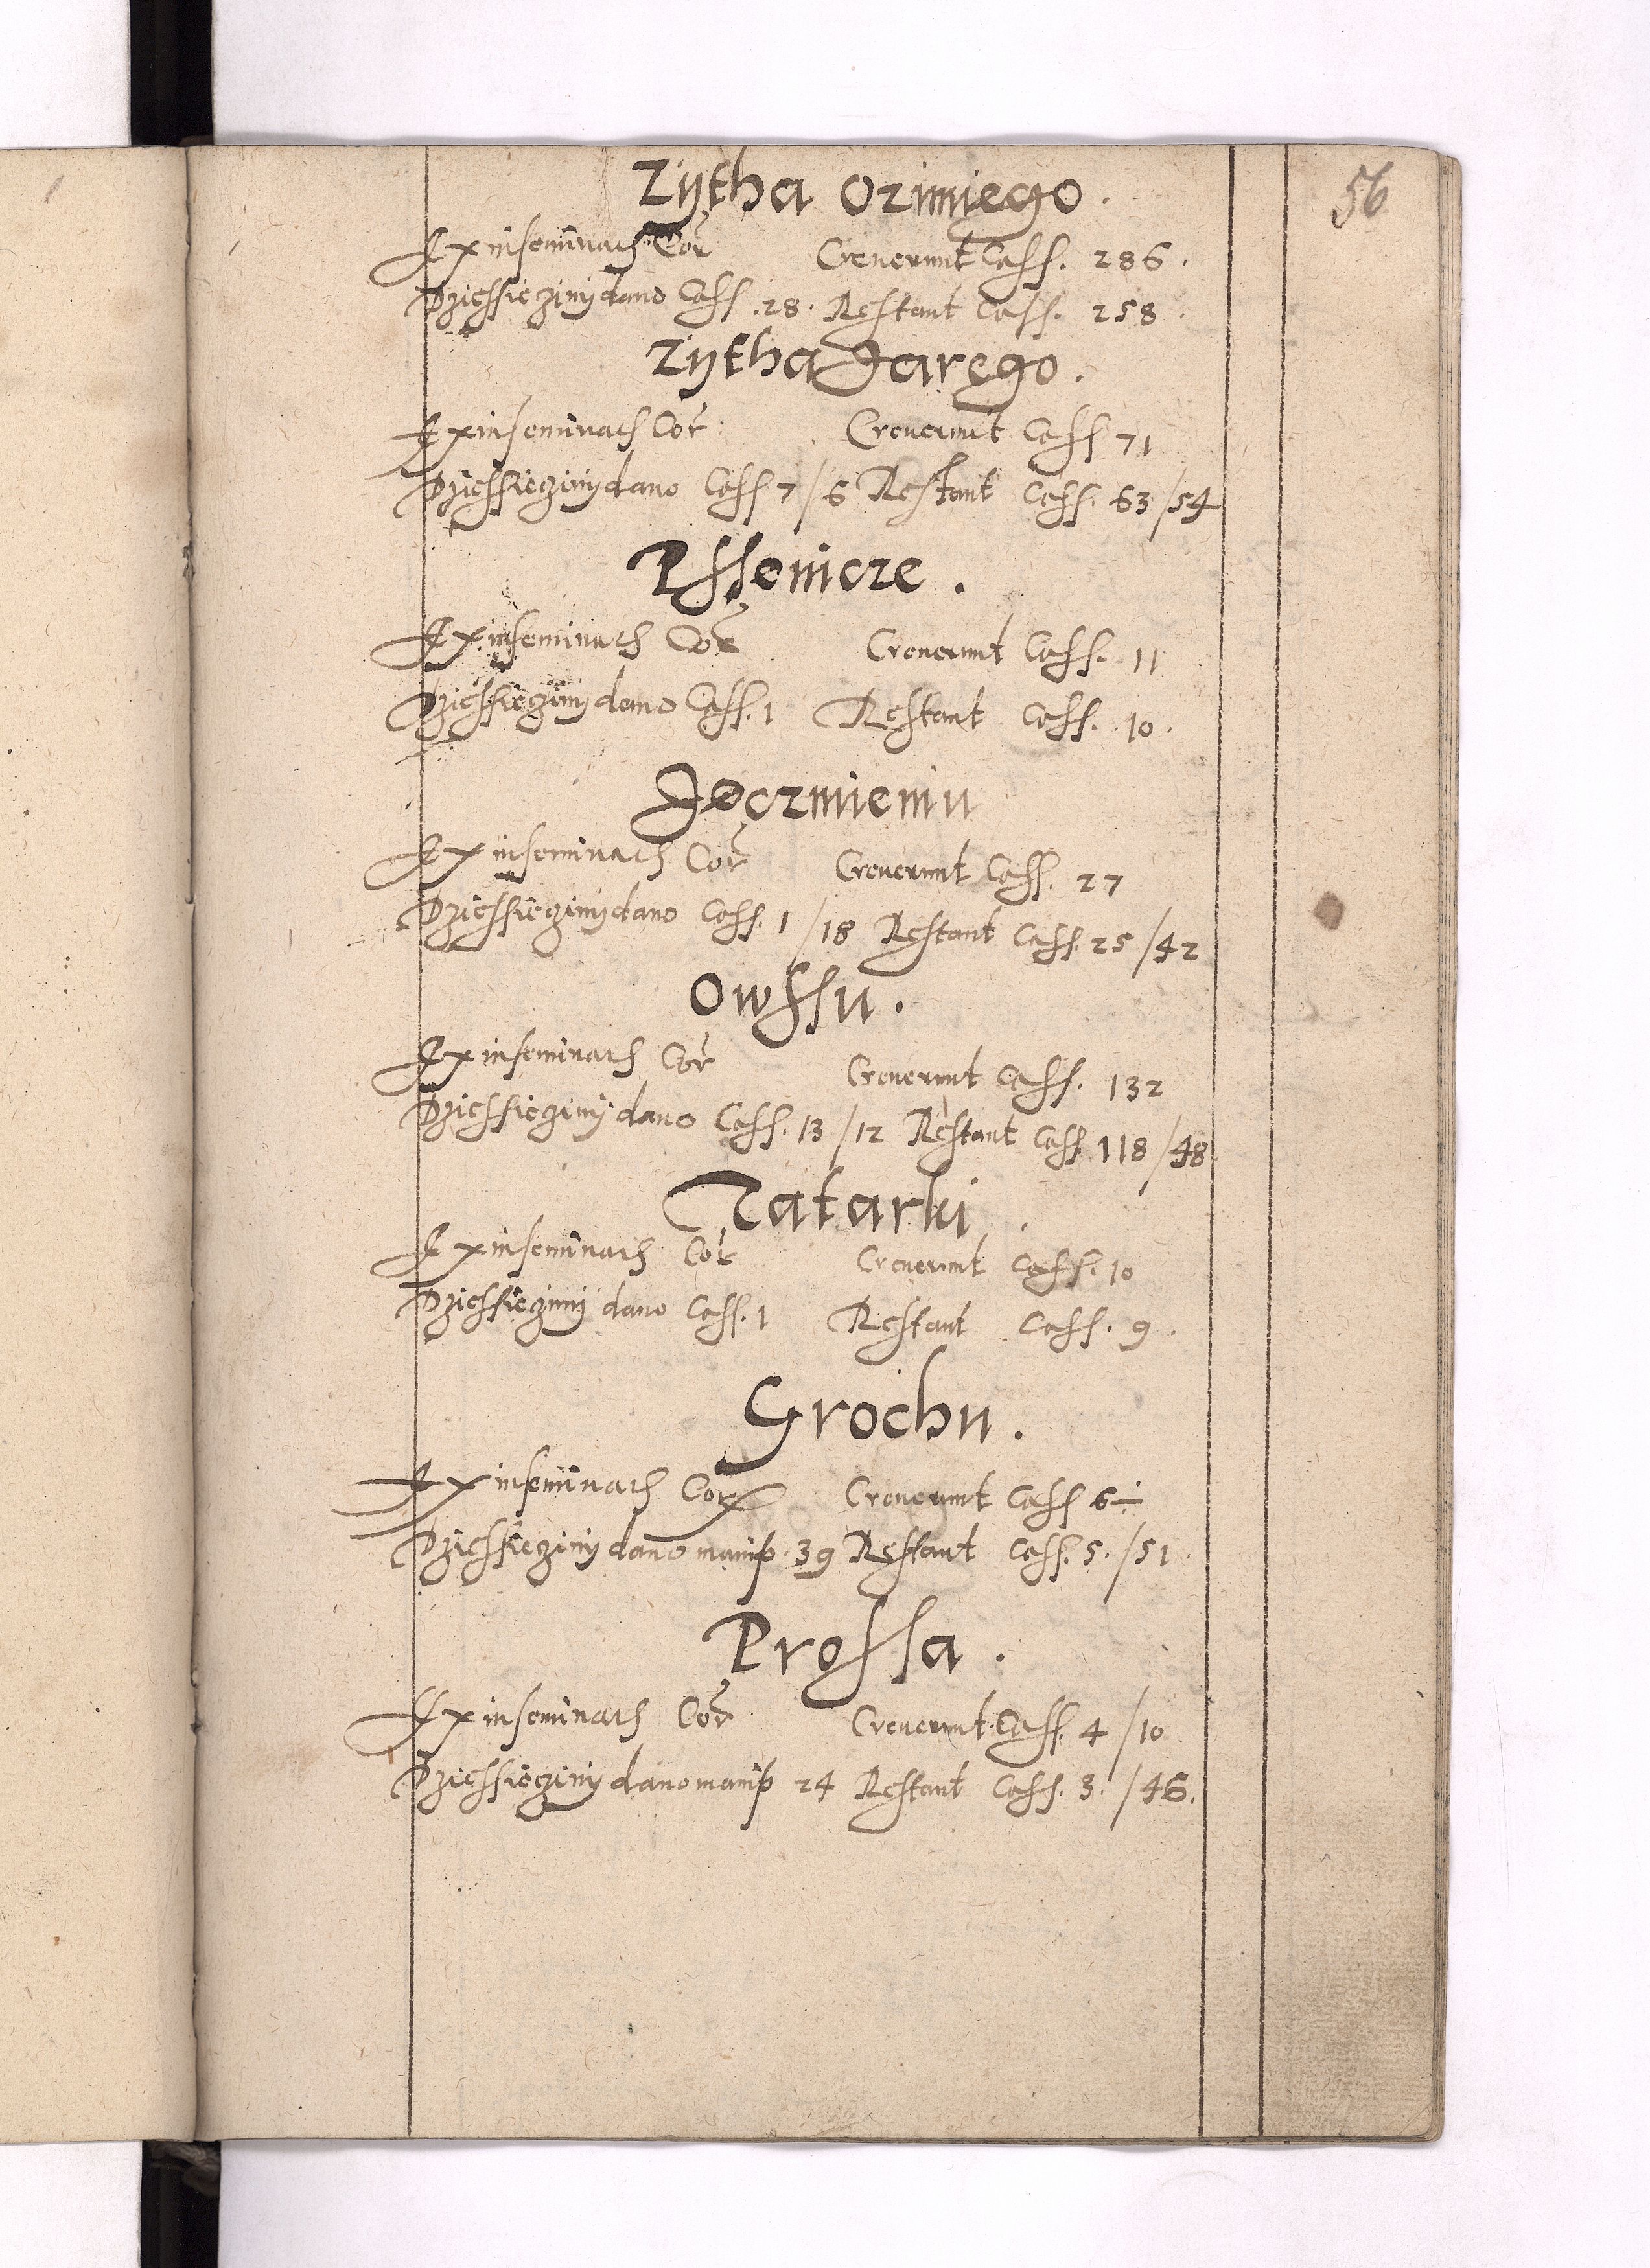 56
Zÿtha ozimiego.
Ex inseminatis Cor Creuerunt Cass. 286.
Dziessiecziny dano Cass. 28. Restant Cass. 258.
Zÿtha Jarego.
Ex inseminatis Cor Creuerunt Cass 71
Dziessiecziny dano Cass 7/6 Restant Cass. 63/54
Pssenicze.
Ex inseminatis Cor Creuerunt Cass. 11
Dziessiecziny dano Cass. 1 Restant Cass. 10.
Jeczmieniu
Ex inseminatis Cor Creuerunt Cass. 27
Dziessiecziny dano Cass. 1/18 Restant Cass. 25/42
Owssu.
Ex inseminatis Cor Creuerunt Cass. 132
Dziessiecziny dano Cass. 13/12 Restant Cass 118/48
Tatarki.
Ex inseminatis Cor Creuerunt Cass. 10
Dziessiecziny dano Cass. 1 Restant Cass. 9.
Grochu.
Ex inseminatis Cor Creuerunt Cass 6÷
Dziessiecziny dano manip. 39 Restant Cass. 5./51.
Prossa.
Ex inseminatis Cor Creuerunt Cass. 4/10
Dziessiecziny dano manip 24 Restant Cass. 3./46.